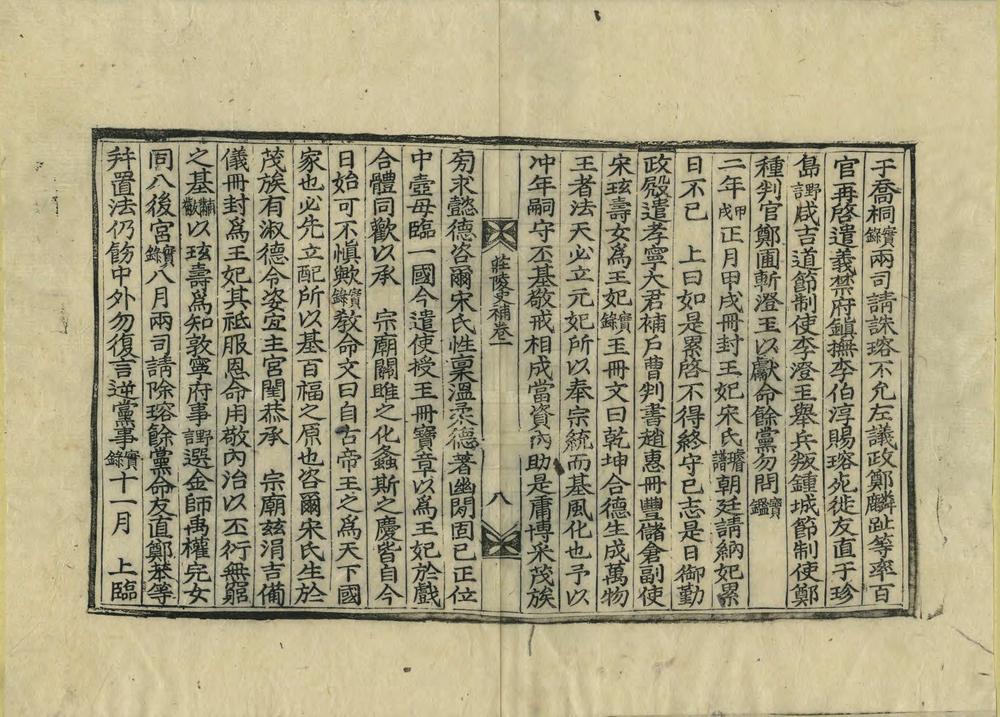 于喬桐實錄兩司請誅瑢不允左議政鄭麟趾等率百
官再啓遣義禁府鎭撫李伯淳賜瑢死徙友直于珍
島野言咸吉道節制使李澄玉擧兵叛鍾城節制使鄭
種判官鄭圃斬澄玉以獻命餘黨勿問寶鑑
二年甲戌正月甲戌冊封王妃宋氏璿譜朝廷請納妃累
日不已 上曰如是累啓不得終守已志是日御勤
政殿遣孝寧大君補戶曹判書趙惠冊豐儲倉副使
宋玹壽女爲王妃實錄王冊文曰乾坤合德生成萬物
王者法天必立元妃所以奉宗統而基風化也予以
冲年嗣守丕基敬戒相成當資內助是庸博采茂族
莊陵史補卷一
八
旁求懿德咨爾宋氏性稟溫柔德著幽閑固已正位
中壼母臨一國今遣使授玉冊寶章以爲王妃於戲
合體同歡以承 宗廟關雎之化螽斯之慶皆自今
日始可不愼歟實錄敎命文曰自古帝王之爲天下國
家也必先立配所以基百福之原也咨爾宋氏生於
茂族有淑德令姿宜主宮闈恭承 宗廟玆涓吉備
儀冊封爲王妃其祗服恩命用敬內治以丕衍無窮
之基以玹壽爲知敦寧府事野言選金師禹權完女
同入後宮實錄八月兩司請除瑢餘黨命友直鄭苯等
幷置法仍飭中外勿復言逆黨事實錄十一月 上臨